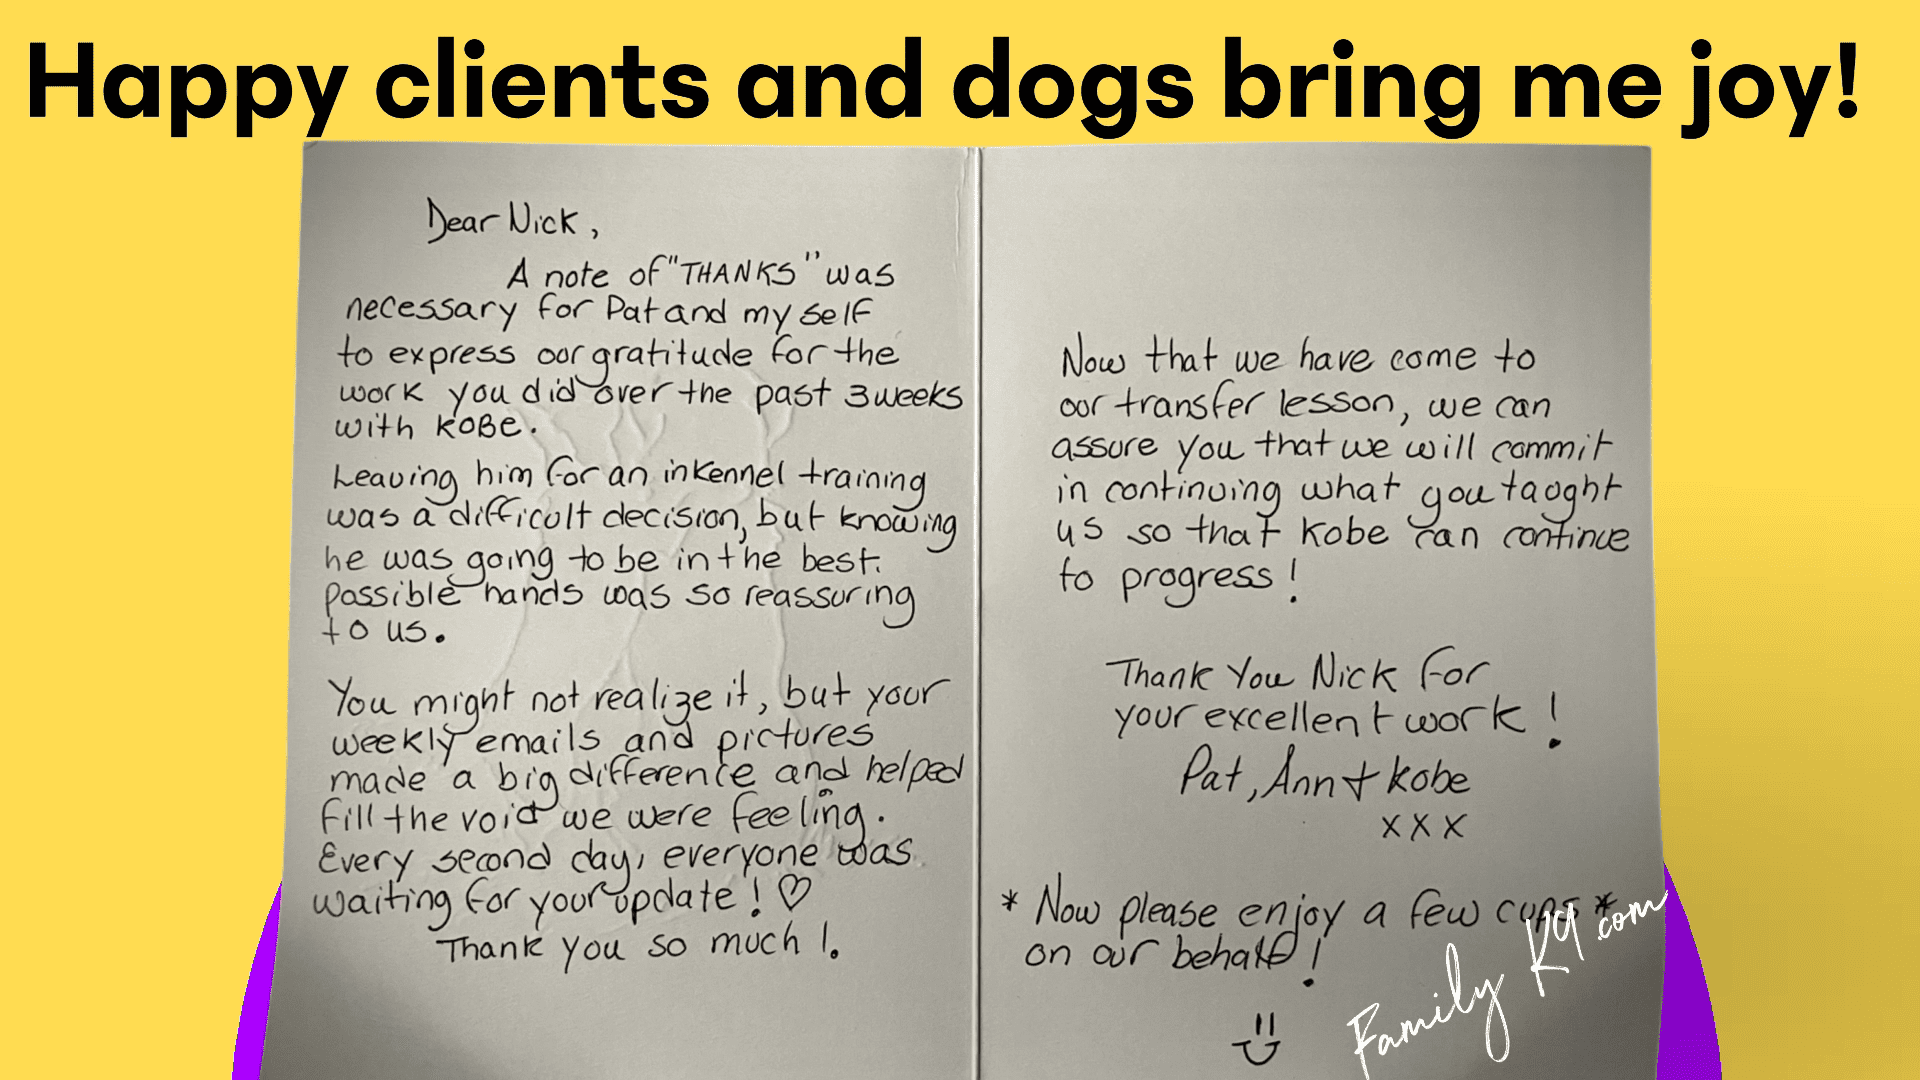 Happy clients and dogs bring me joy!
Dear Nick,
A note of "THANKS" was
necessary for Pat and my self
to express our gratitude for the
work you did over the past 3 weeks
with KOBE.
Leaving him for an inkennel training
was a difficult decision, but knowing
he was going to be in the best.
possible hands was so reassuring
to us.
You might not realize it, but your
weekly emails and pictures
made a big difference and helped
fill the void we were feeling.
Every second day, everyone was
waiting for your update! ♡
Thank you so much !.
Now that we have come to
our transfer lesson, we can
assure you that we will commit
in continuing what you taught
us so that Kobe can continue
to progress!
Thank You Nick for
your excellent work!
Pat, Ann + Kobe
xxx
* Now please enjoy a few cups *
on our behalf!
Family K9.com